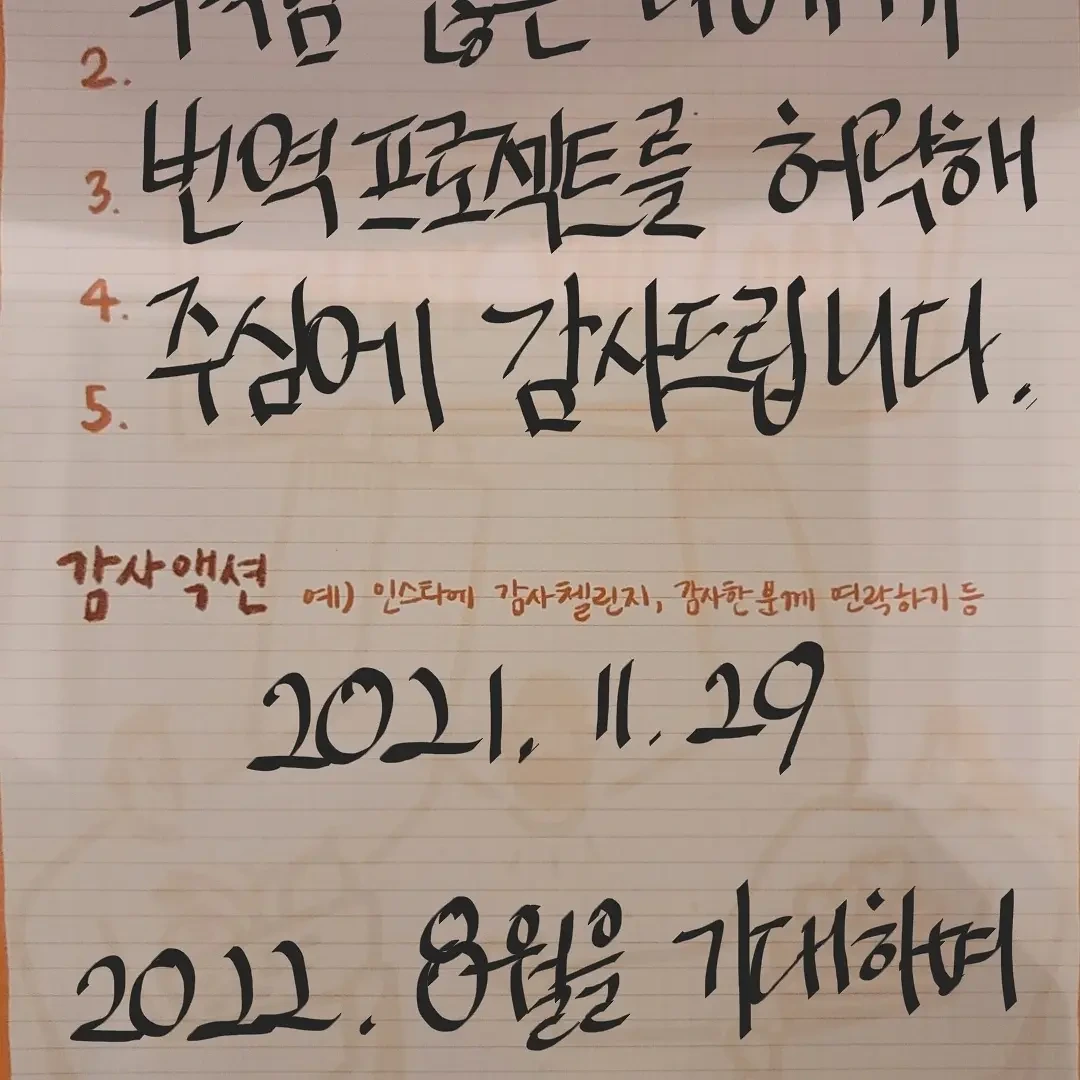 2.
3. 번역프로젝트를 허락해
4. 주심에 감사드립니다.
5.
감사액션 예) 인스타에 감사챌린지, 감사한 분께 연락하기 등
2021. 11. 29
2022. 8월을 기대하며